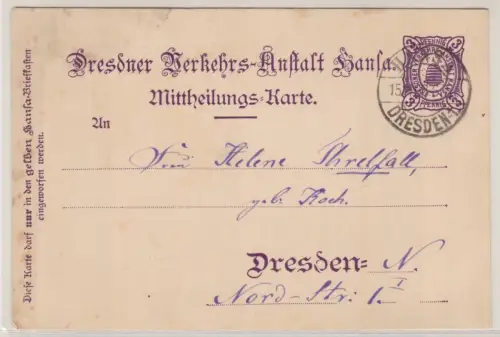 Dresdner Verkehrs-Anstalt Hansa.
Mittheilungs-Karte.
An
Frau Helene Threlfall,
geb. Koch.
Dresden= N.
Nord-Str: 1 I
Diese Karte darf nur in den gelben Hansa-Briefkasten
eingeworfen werden.
3 3
3 3
PFENNIG
15
DRESDEN